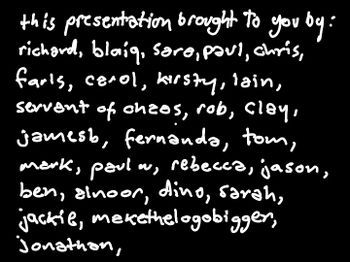 this presentation brought to you by:
richard, blaiq, sara, paul, chris,
faris, carol, kirsty, iain,
servant of chaos, rob, clay,
jamesb, fernanda, tom,
mark, paul w, rebecca, jason,
ben, alnoor, dino, sarah,
jackie, makethelogobigger,
jonathan,